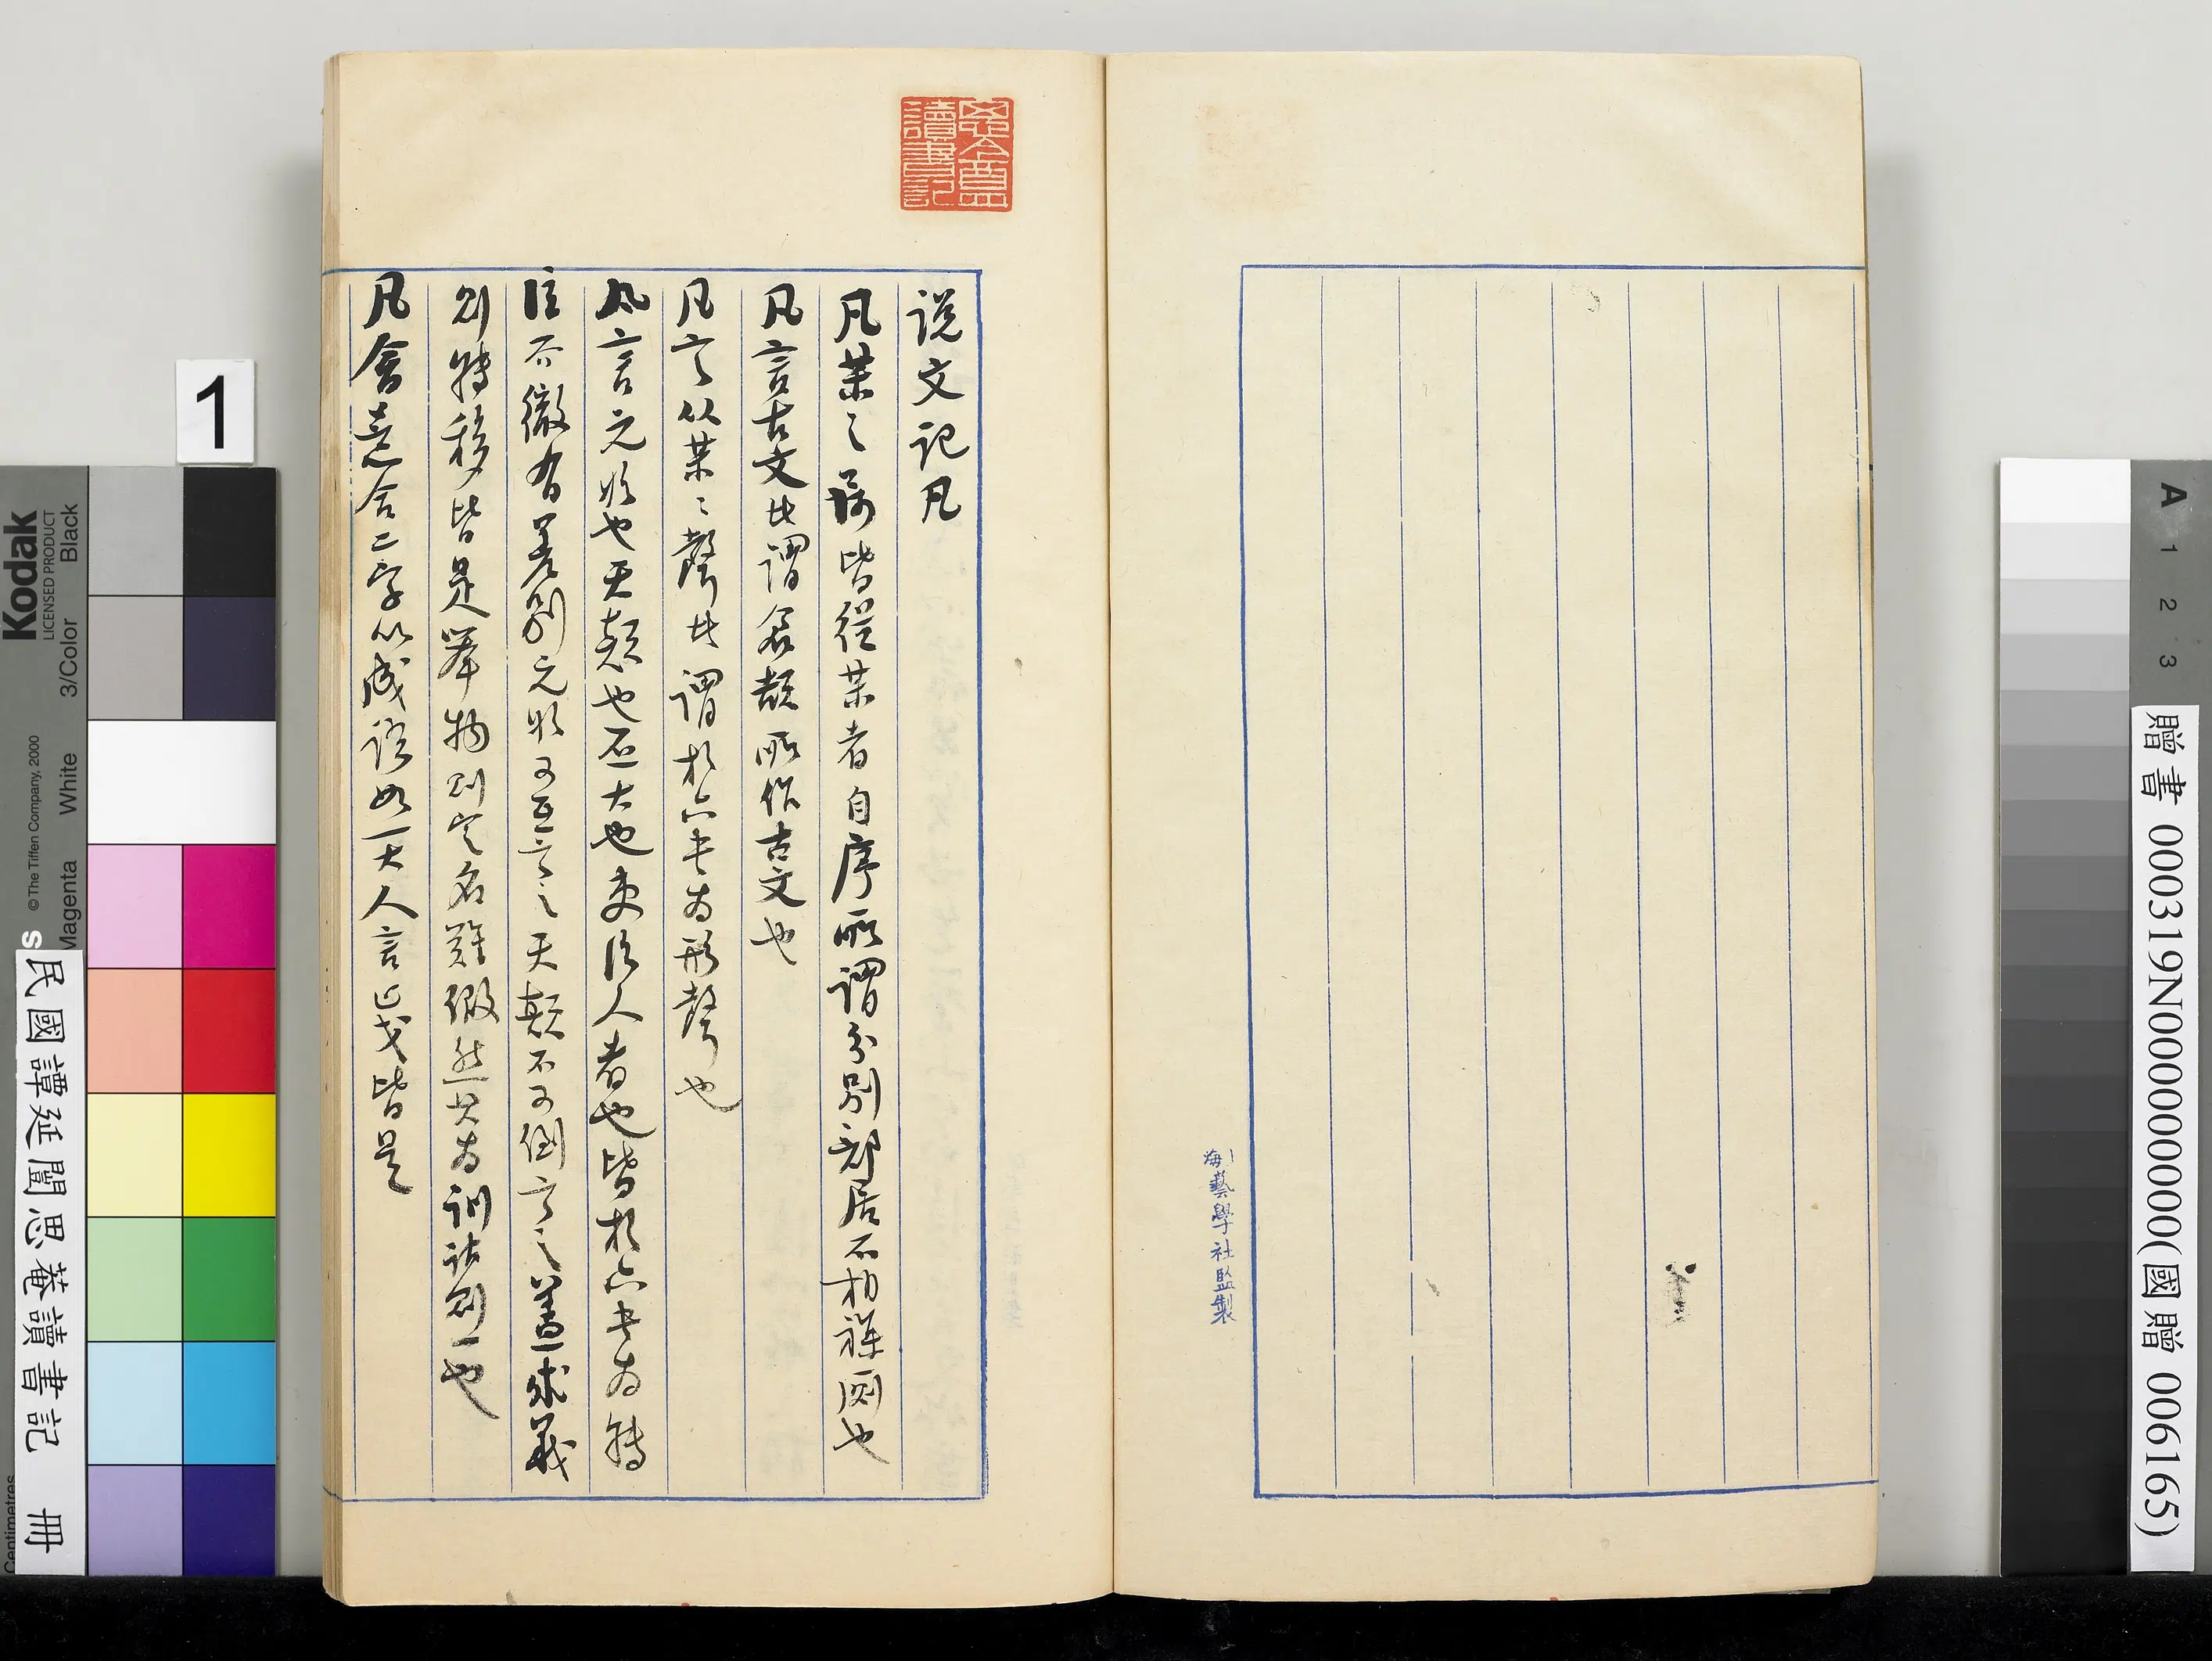 思盦
讀書記
說文記凡
凡某之屬皆從某者自序所謂分別部居不相襍厠也
凡言古文者謂倉頡所作古文也
凡言从某某聲者謂於六書為形聲也
凡言元始也天顛也丕大也吏治人者也皆於六書為轉
注而微有差別元始可互言之天顛不可倒言之蓋求義
則轉移皆是舉物則定名難假然其為訓詁則一也
凡會意合二字以成語如一大人言止戈皆是
海藝學社監製
1
Kodak
LICENSED PRODUCT
Black
3/Color
White
Magenta
© The Tiffen Company, 2000
Centimetres
民國譚延闓思菴讀書記 冊
A 1 2 3
贈書 000319N000000000(國贈 006165)